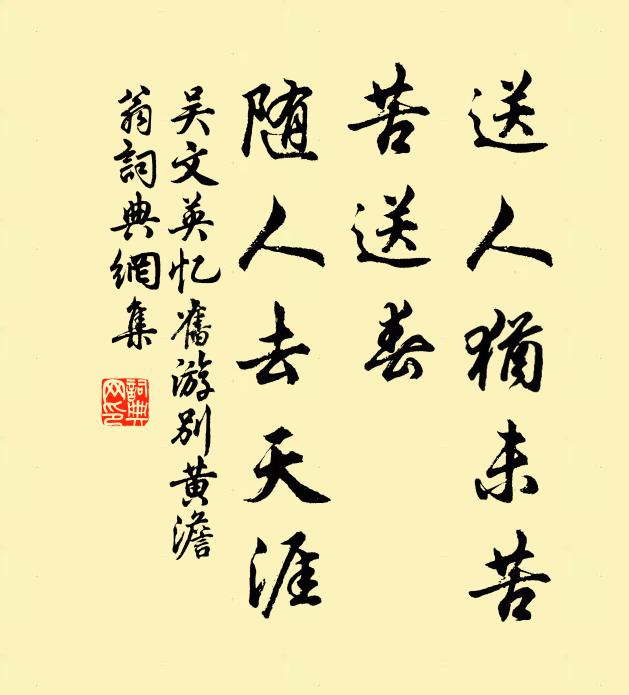 送人猶未苦
苦送春
随人去天涯
吴文英忆舊游别黄澹
翁詞典網集
詞典
网印